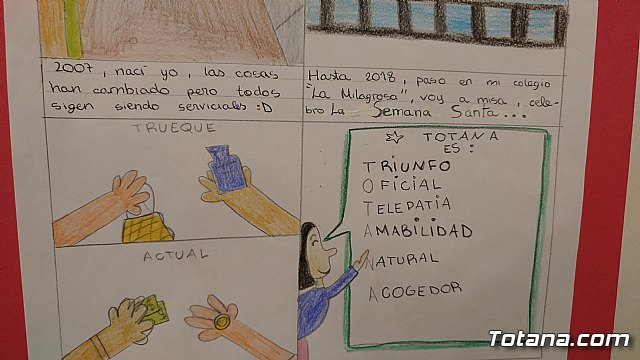 2007, nací yo, las cosas
han cambiado pero todos
sigen siendo serviciales :D
Hasta 2018, paso en mi colegio
"La Milagrosa", voy a misa, cele-
bro La Semana Santa...
TRUEQUE
ACTUAL
☆ TOTANA
ES:
TRIUNFO
OFICIAL
TELEPATIA
AMABILIDAD
NATURAL
ACOGEDOR
Totana.com